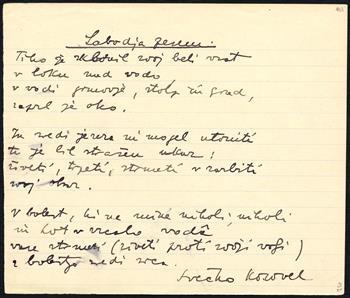 Labodja pesem.
Tiho je sklonil svoj beli vrat
v loku nad vodo
v vodi gozdovje, stolp in grad,
zaprl je oko.
In sredi jezera ni mogel utoniti
to je bil strašen ukaz:
živeti, trpeti, strmeti v razbiti
svoj obraz.
V bolest, ki ne mine nikoli, nikoli
ni kot v vodi
vase strmeti (živeti proti svoji volji)
z bolestjo sredi srca.
Srečko Kosovel